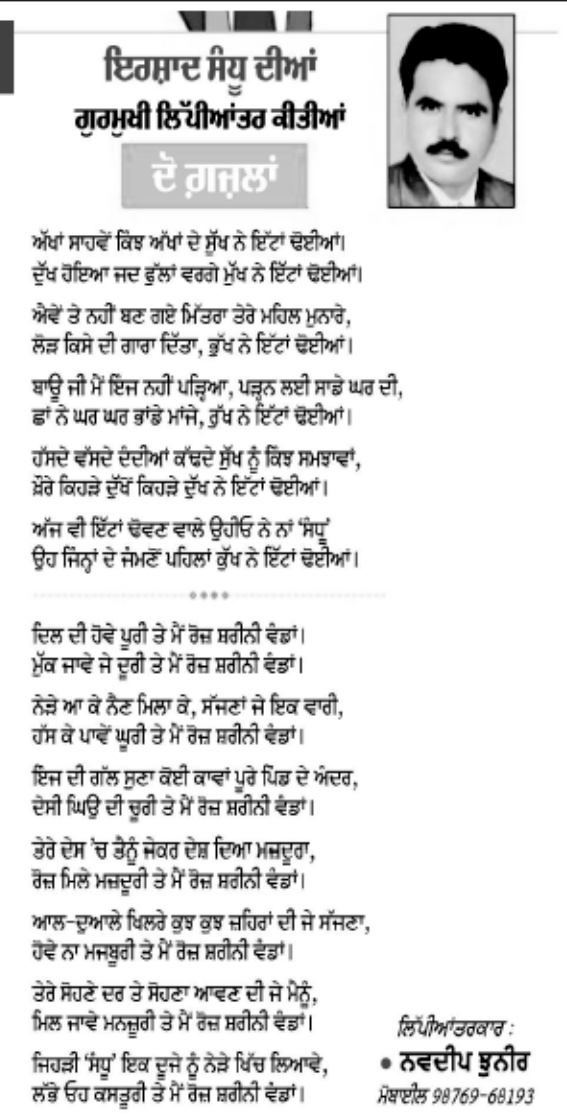 ਇਰਸ਼ਾਦ ਸੰਧੂ ਦੀਆਂ
ਗੁਰਮੁਖੀ ਲਿੱਪੀਆਂਤਰ ਕੀਤੀਆਂ
ਦੋ ਗ਼ਜ਼ਲਾਂ
ਅੱਖਾਂ ਸਾਹਵੇਂ ਕਿੰਝ ਅੱਖਾਂ ਦੇ ਸੁੱਖ ਨੇ ਇੱਟਾਂ ਢੋਈਆਂ।
ਦੁੱਖ ਹੋਇਆ ਜਦ ਫੁੱਲਾਂ ਵਰਗੇ ਮੁੱਖ ਨੇ ਇੱਟਾਂ ਢੋਈਆਂ।
ਐਵੇਂ ਤੇ ਨਹੀਂ ਬਣ ਗਏ ਮਿੱਤਰਾ ਤੇਰੇ ਮਹਿਲ ਮੁਨਾਰੇ,
ਲੋੜ ਕਿਸੇ ਦੀ ਗਾਰਾ ਦਿੱਤਾ, ਭੁੱਖ ਨੇ ਇੱਟਾਂ ਢੋਈਆਂ।
ਬਾਊ ਜੀ ਮੈਂ ਇੰਜ ਨਹੀਂ ਪੜ੍ਹਿਆ, ਪੜ੍ਹਨ ਲਈ ਸਾਡੇ ਘਰ ਦੀ,
ਛਾਂ ਨੇ ਘਰ ਘਰ ਭਾਂਡੇ ਮਾਂਜੇ, ਰੁੱਖ ਨੇ ਇੱਟਾਂ ਢੋਈਆਂ।
ਹੱਸਦੇ ਵੱਸਦੇ ਦੰਦੀਆਂ ਕੱਢਦੇ ਸੁੱਖ ਨੂੰ ਕਿੰਝ ਸਮਝਾਵਾਂ,
ਖ਼ੌਰੇ ਕਿਹੜੇ ਦੁੱਖੋਂ ਕਿਹੜੇ ਦੁੱਖ ਨੇ ਇੱਟਾਂ ਢੋਈਆਂ।
ਅੱਜ ਵੀ ਇੱਟਾਂ ਢੋਵਣ ਵਾਲੇ ਉਹੀਓ ਨੇ ਨਾਂ 'ਸੰਧੂ'
ਉਹ ਜਿੰਨ੍ਹਾਂ ਦੇ ਜੰਮਣੋਂ ਪਹਿਲਾਂ ਕੁੱਖ ਨੇ ਇੱਟਾਂ ਢੋਈਆਂ।
ਦਿਲ ਦੀ ਹੋਵੇ ਪੂਰੀ ਤੇ ਮੈਂ ਰੋਜ਼ ਸ਼ਰੀਨੀ ਵੰਡਾਂ।
ਮੁੱਕ ਜਾਵੇ ਜੇ ਦੂਰੀ ਤੇ ਮੈਂ ਰੋਜ਼ ਸ਼ਰੀਨੀ ਵੰਡਾਂ।
ਨੇੜੇ ਆ ਕੇ ਨੈਣ ਮਿਲਾ ਕੇ, ਸੱਜਣਾਂ ਜੇ ਇਕ ਵਾਰੀ,
ਹੱਸ ਕੇ ਪਾਵੇਂ ਘੂਰੀ ਤੇ ਮੈਂ ਰੋਜ਼ ਸ਼ਰੀਨੀ ਵੰਡਾਂ।
ਇੰਜ ਦੀ ਗੱਲ ਸੁਣਾ ਕੋਈ ਕਾਵਾਂ ਪੂਰੇ ਪਿੰਡ ਦੇ ਅੰਦਰ,
ਦੇਸੀ ਘਿਉ ਦੀ ਚੂਰੀ ਤੇ ਮੈਂ ਰੋਜ਼ ਸ਼ਰੀਨੀ ਵੰਡਾਂ।
ਤੇਰੇ ਦੇਸ 'ਚ ਤੈਨੂੰ ਜੇਕਰ ਦੇਸ਼ ਦਿਆ ਮਜ਼ਦੂਰਾ,
ਰੋਜ਼ ਮਿਲੇ ਮਜ਼ਦੂਰੀ ਤੇ ਮੈਂ ਰੋਜ਼ ਸ਼ਰੀਨੀ ਵੰਡਾਂ।
ਆਲ-ਦੁਆਲੇ ਖਿਲਰੇ ਕੁਝ ਕੁਝ ਜ਼ਹਿਰਾਂ ਦੀ ਜੇ ਸੱਜਣਾ,
ਹੋਵੇ ਨਾ ਮਜਬੂਰੀ ਤੇ ਮੈਂ ਰੋਜ਼ ਸ਼ਰੀਨੀ ਵੰਡਾਂ।
ਤੇਰੇ ਸੋਹਣੇ ਦਰ ਤੇ ਸੋਹਣਾ ਆਵਣ ਦੀ ਜੇ ਮੈਨੂੰ,
ਮਿਲ ਜਾਵੇ ਮਨਜ਼ੂਰੀ ਤੇ ਮੈਂ ਰੋਜ਼ ਸ਼ਰੀਨੀ ਵੰਡਾਂ।
ਜਿਹੜੀ 'ਸੰਧੂ' ਇਕ ਦੂਜੇ ਨੂੰ ਨੇੜੇ ਖਿੱਚ ਲਿਆਵੇ,
ਲੱਭੇ ਓਹ ਕਸਤੂਰੀ ਤੇ ਮੈਂ ਰੋਜ਼ ਸ਼ਰੀਨੀ ਵੰਡਾਂ।
ਲਿੱਪੀਆਂਤਰਕਾਰ :
● ਨਵਦੀਪ ਝੁਨੀਰ
ਮੋਬਾਈਲ 98769-68193